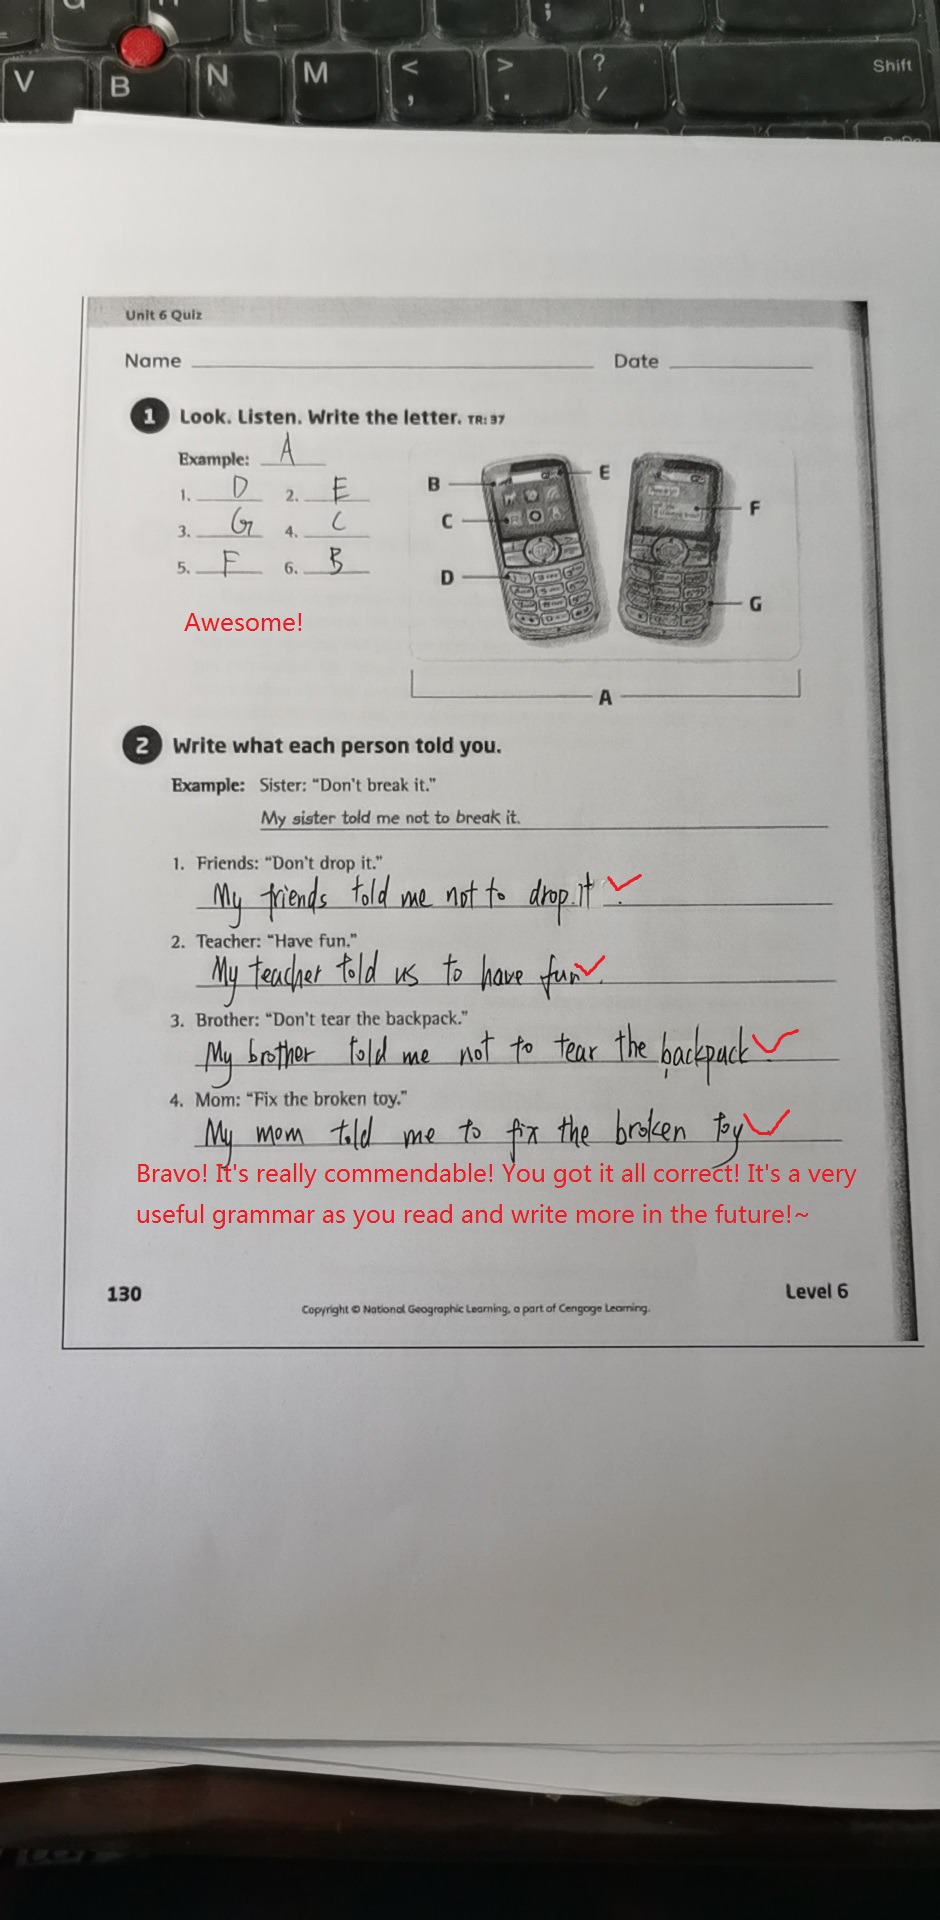 V B N M < , > . ? / Shift
Unit 6 Quiz
Name Date
1 Look. Listen. Write the letter. TR: 37
Example: A
1. D 2. E
3. G 4. C
5. F 6. B
B E
C F
D G
A
Awesome!
2 Write what each person told you.
Example: Sister: "Don't break it."
My sister told me not to break it.
1. Friends: "Don't drop it."
My friends told me not to drop it.
2. Teacher: "Have fun."
My teacher told us to have fun.
3. Brother: "Don't tear the backpack."
My brother told me not to tear the backpack
4. Mom: "Fix the broken toy."
My mom told me to fix the broken toy
Bravo! It's really commendable! You got it all correct! It's a very
useful grammar as you read and write more in the future!~
130 Level 6
Copyright © National Geographic Learning, a part of Cengage Learning.